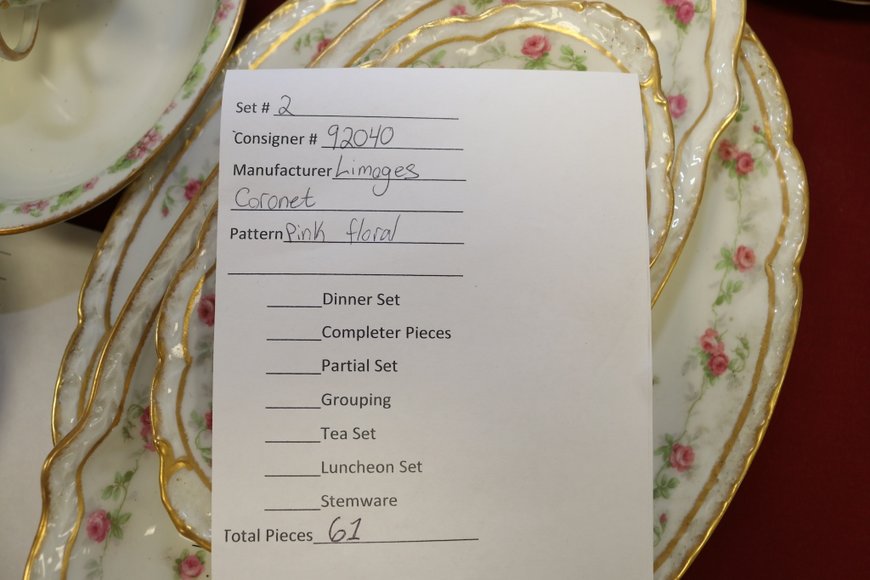 Set # 2
Consigner # 92040
Manufacturer Limoges
Coronet
Pattern Pink floral
______Dinner Set
______Completer Pieces
______Partial Set
______Grouping
______Tea Set
______Luncheon Set
______Stemware
Total Pieces 61